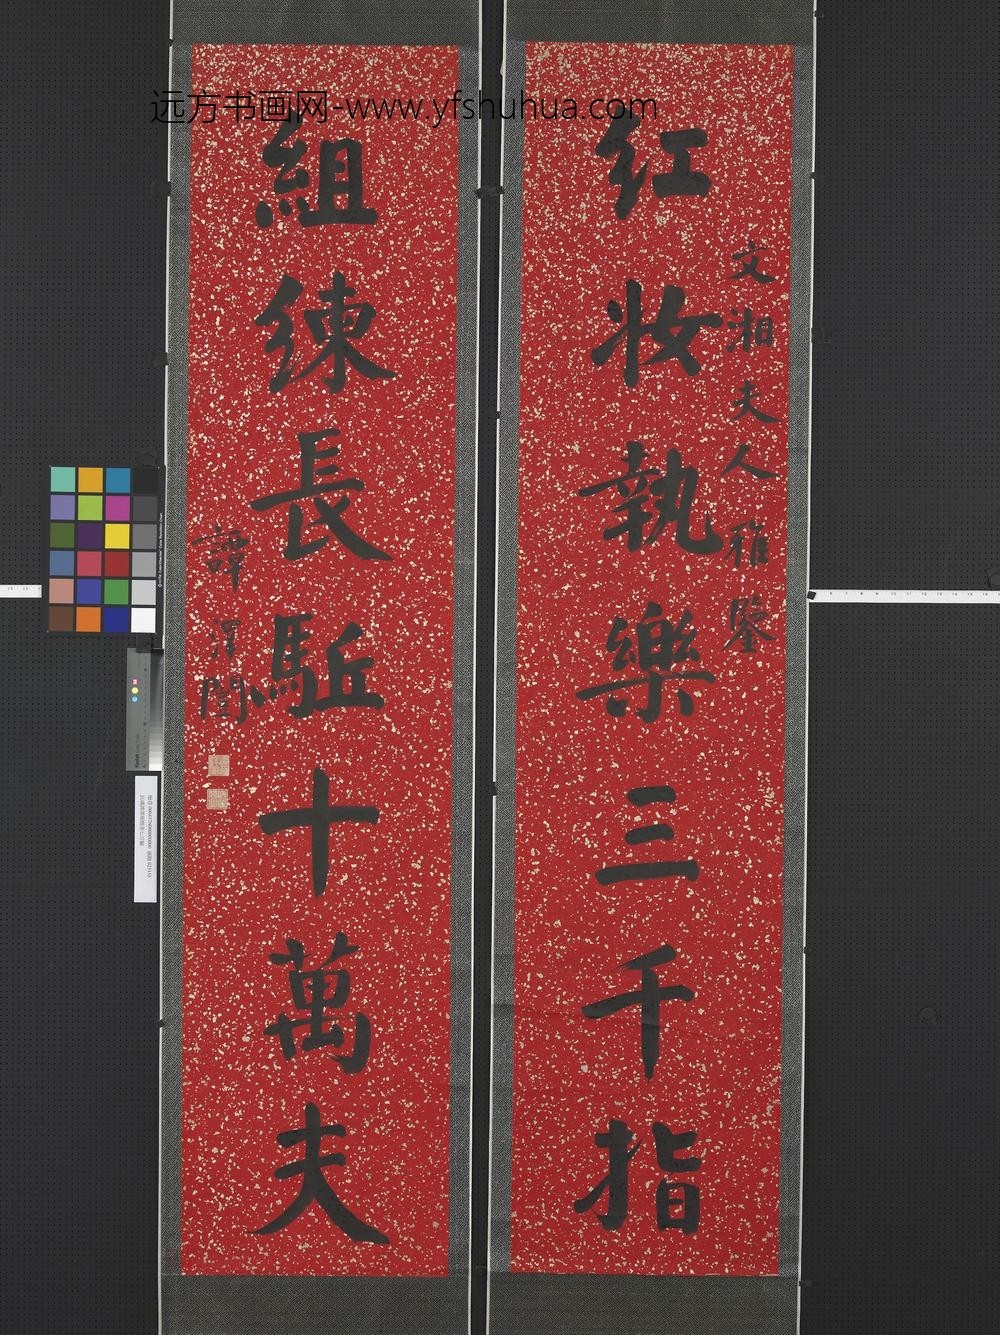 远方书画网-www.yfshuhua.com
文湘夫人雅鑒
紅妝執樂三千指
組練長驅十萬夫
譚澤闓